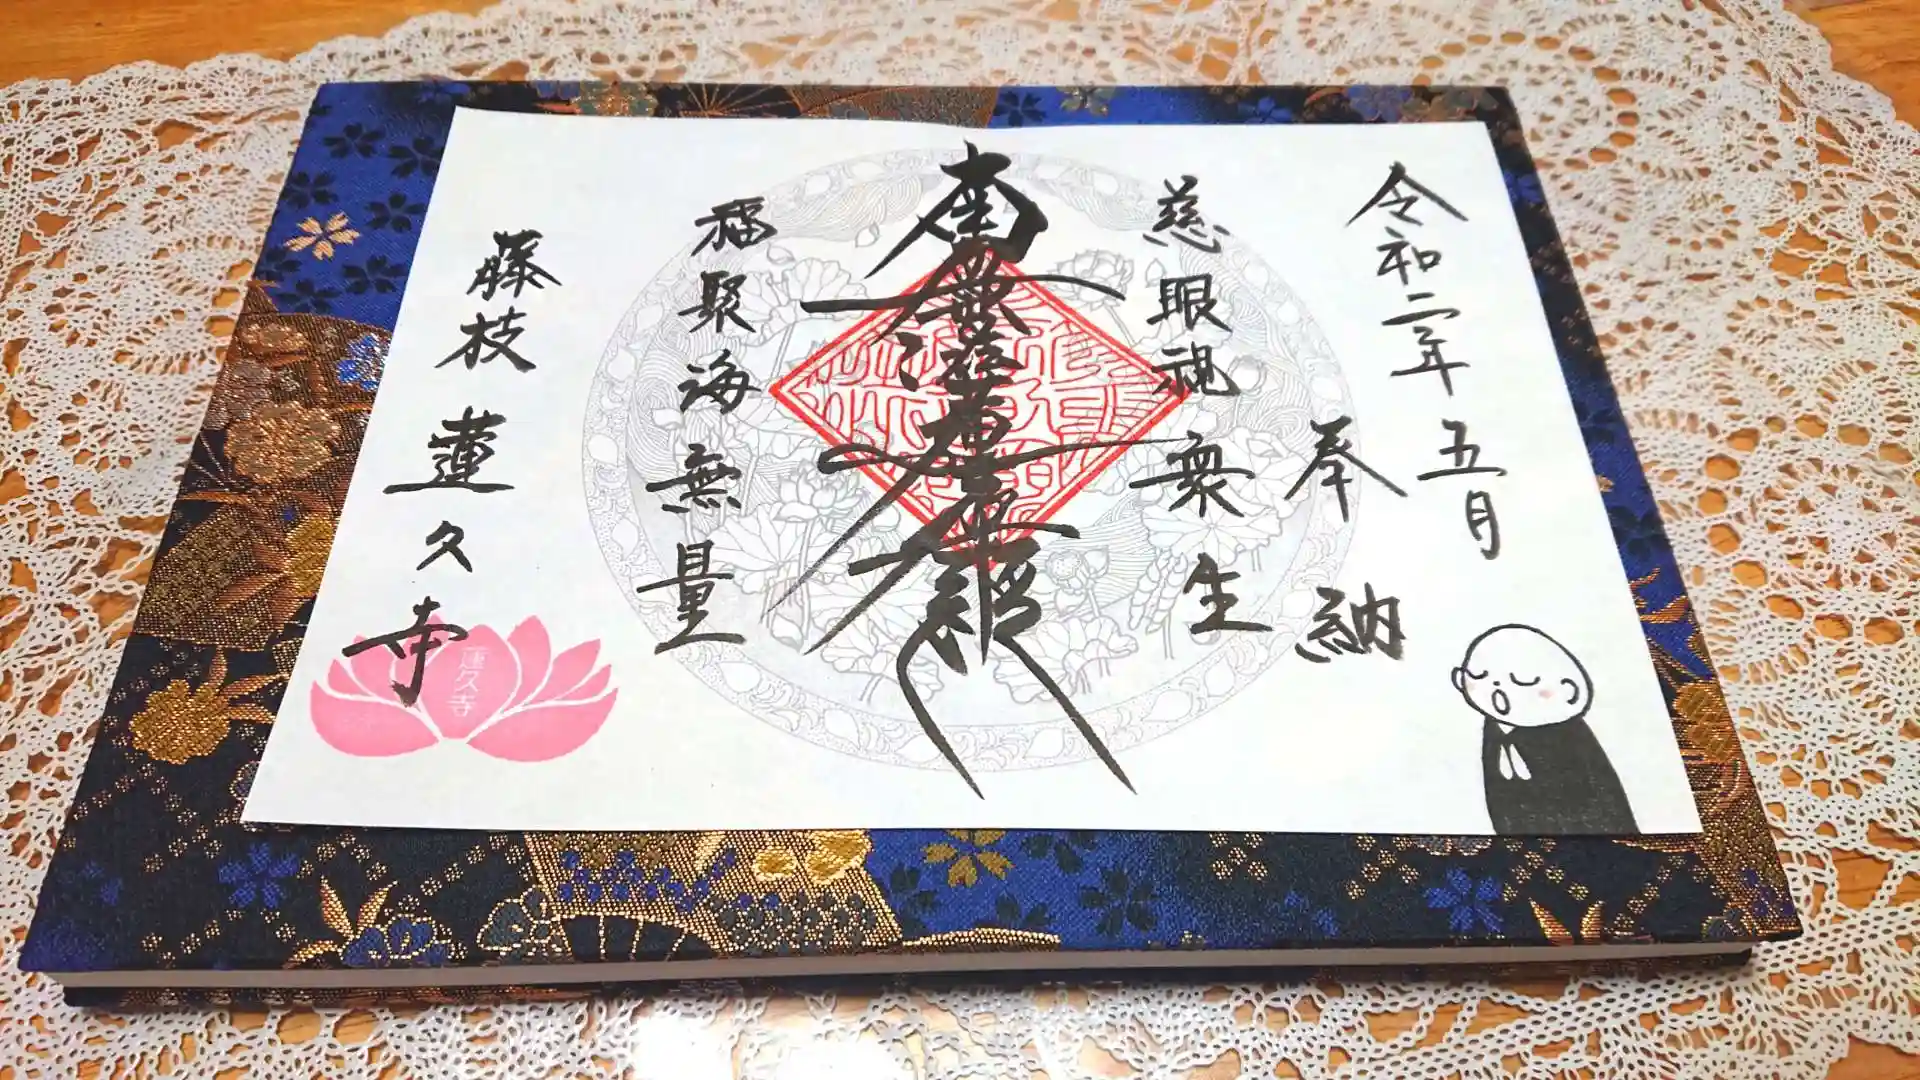 令和二年 五月
奉納
慈眼視衆生
南無妙法蓮華経
福聚海無量
藤枝 蓮久寺
蓮久寺